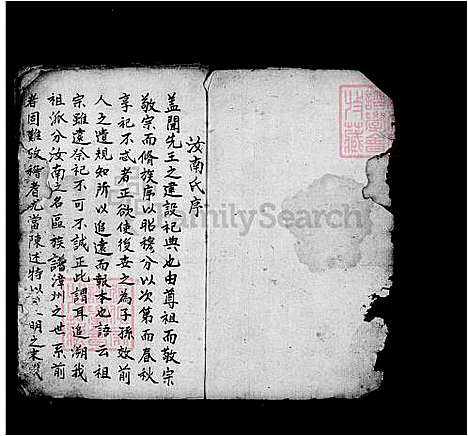 汝南氏序
蓋聞先王之建設祀典也由尊祖而敬宗
敬宗而脩族序以昭穆分以次第而春秋
享祀不忒者正欲使後世之為子孫效前
人之遺規如所以追遠而報本也語云祖
宗雖遠祭祀不可不誠正此謂耳追溯我
祖派分汝南之名區族譜漳州之世系前
者固難攷稽者尤當陳述特以 明之末
FamilySearch